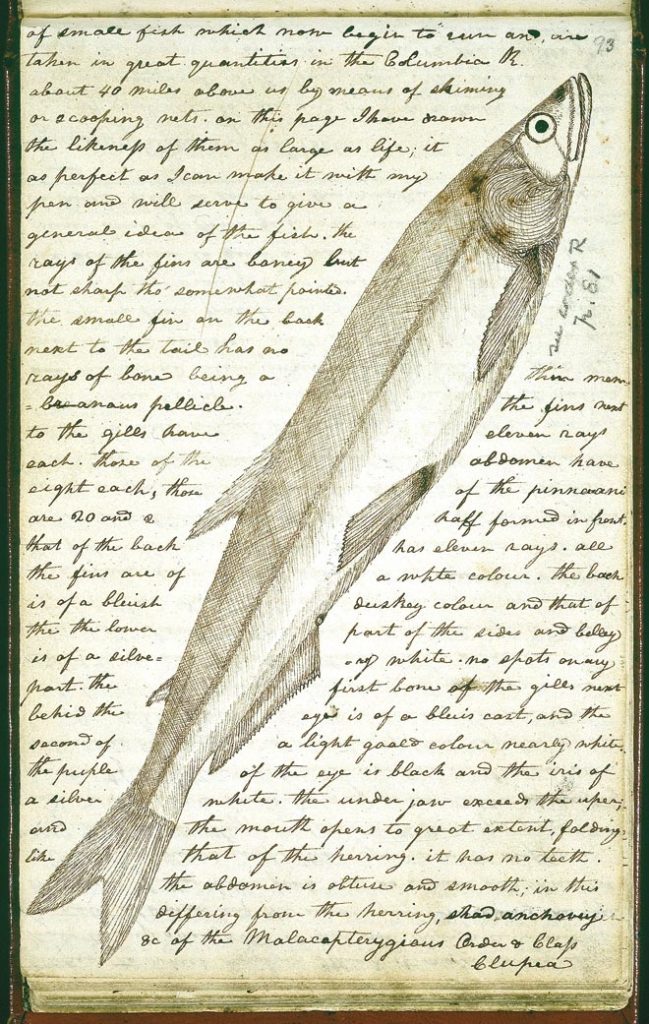 of small fish which now begin to run and, are 93
taken in great quantities in the Columbia R.
about 40 miles above us by means of skiming
or scooping nets. on this page I have drawn
the likeness of them as large as life; it
as perfect as I can make it with my
pen and will serve to give a
general idea of the fish. the
rays of the fins are boney but
not sharp tho' somewhat pointed.
the small fin on the back
next to the tail has no
rays of bone being a thin mem
=branous pellicle. the fins next
to the gills have eleven rays
each. those of the abdomen have
eight each, those of the pinnaani
are 20 and 2 half formed in front.
that of the back has eleven rays. all
the fins are of a white colour. the back
is of a bluish duskey colour and that of
the the lower part of the sides and belley
is of a silve= -ry white. no spots on any
part. the first bone of the gills next
behid the eye is of a bluis cast, and the
second of a light goald colour nearly white.
the puple of the eye is black and the iris of
a silver white. the under jaw exceeds the uper;
and the mouth opens to great extent, folding
like that of the herring. it has no teeth.
the abdomen is obtuse and smooth; in this
differing from the herring, shad, anchovy
&c of the Malacapterygious Order & Class
Clupea
see codex R
p. 81